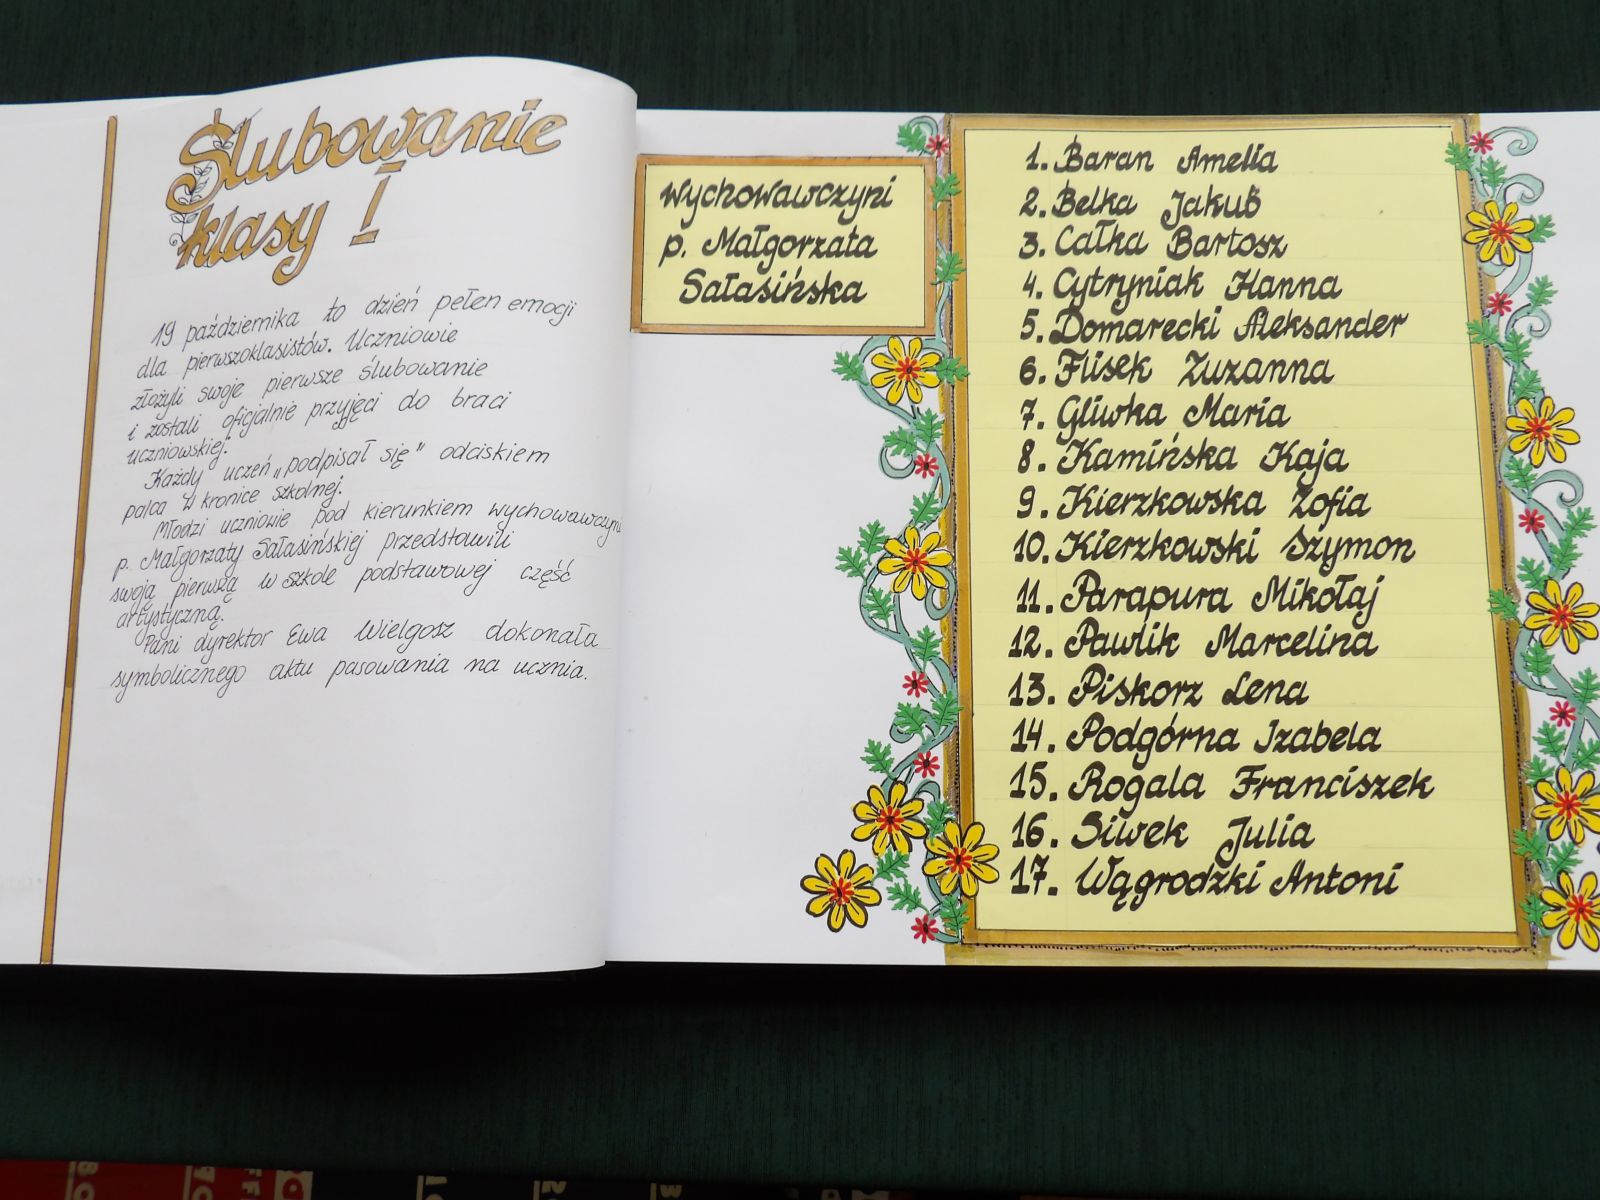 Ślubowanie
klasy I
19 października to dzień pełen emocji
dla pierwszoklasistów. Uczniowie
złożyli swoje pierwsze ślubowanie
i zostali oficjalnie przyjęci do braci
uczniowskiej.
Każdy uczeń „podpisał się" odciskiem
palca w kronice szkolnej.
Młodzi uczniowie pod kierunkiem wychowawczyni
p. Małgorzaty Sałasińskiej przedstawili
swoją pierwszą w szkole podstawowej część
artystyczną.
Pani dyrektor Ewa Wielgosz dokonała
symbolicznego aktu pasowania na ucznia.
Wychowawczyni
p. Małgorzata
Sałasińska
1. Baran Amelia
2. Belka Jakub
3. Całka Bartosz
4. Cytryniak Hanna
5. Domarecki Aleksander
6. Flisek Zuzanna
7. Gliwka Maria
8. Kamińska Kaja
9. Kierzkowska Zofia
10. Kierzkowski Szymon
11. Parapura Mikołaj
12. Pawlik Marcelina
13. Piskorz Lena
14. Podgórna Izabela
15. Rogala Franciszek
16. Siwek Julia
17. Wągrodzki Antoni